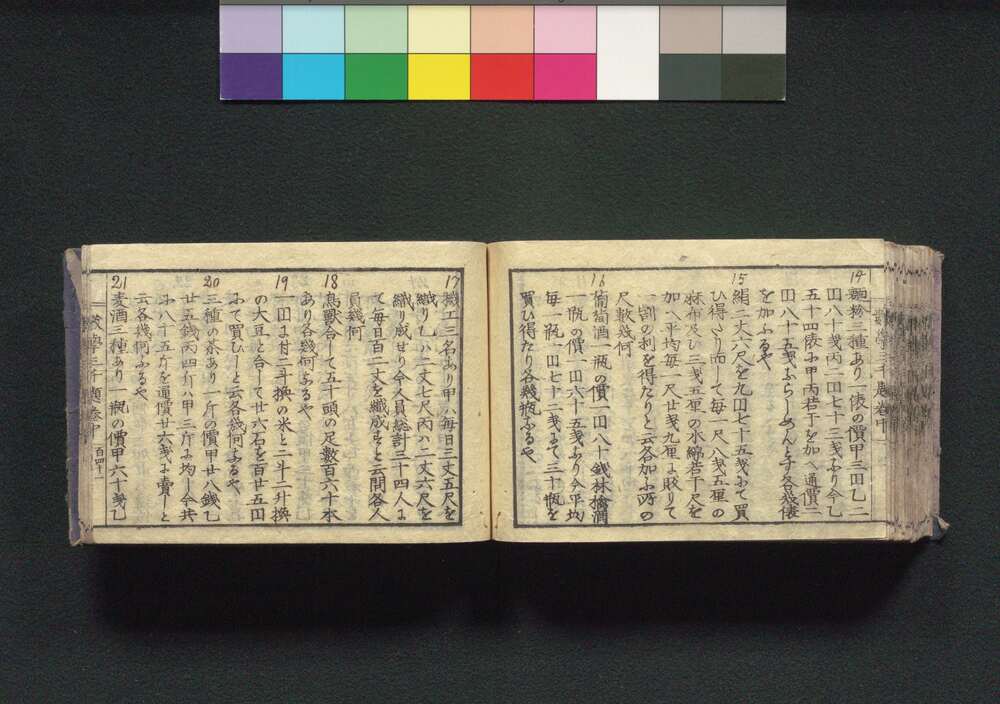 14
麺粉三種あり一俵の價甲三円乙二
円八十銭丙二円七十三銭なり今乙
五十四俵に甲丙若干を加へ通價二
円八十五銭ならしめんとす各幾俵
を加ふるや
15
絹二丈六尺を九円七十五銭にて買
ひ得たり而して毎一尺八銭五厘の
麻布及び三銭五厘の木綿若干尺を
加へ平均毎一尺廿銭九厘に販りて
一割の利を得たりと云各加ふ所の
尺数幾何
16
葡萄酒一瓶の價一円八十銭林檎酒
一瓶の價一円六十五銭なり今平均
毎一瓶一円七十二銭にて三十瓶を
買ひ得たり各幾瓶なるや
17
機工三名あり甲ハ毎日三丈五尺を
織り乙ハ二丈七尺丙ハ二丈六尺を
織り成せり今人員総計三十四人に
て毎日百二丈を織成すと云問各人
員幾何
18
鳥獣合して五十頭の足数百六十本
あり各幾何なるや
19
一円に付二斗換の米と二斗二升換
の大豆と合して廿六石を百廿五円
にて買ひしと云各幾何なるや
20
三種の茶あり一斤の價甲廿八銭乙
廿五銭丙四斤ハ甲三斤に均し今共
に八十五斤を通價廿六銭に賣しと
云各幾何なるや
21
麦酒三種あり一瓶の價甲六十銭乙
數學三千題巻中
百四十一